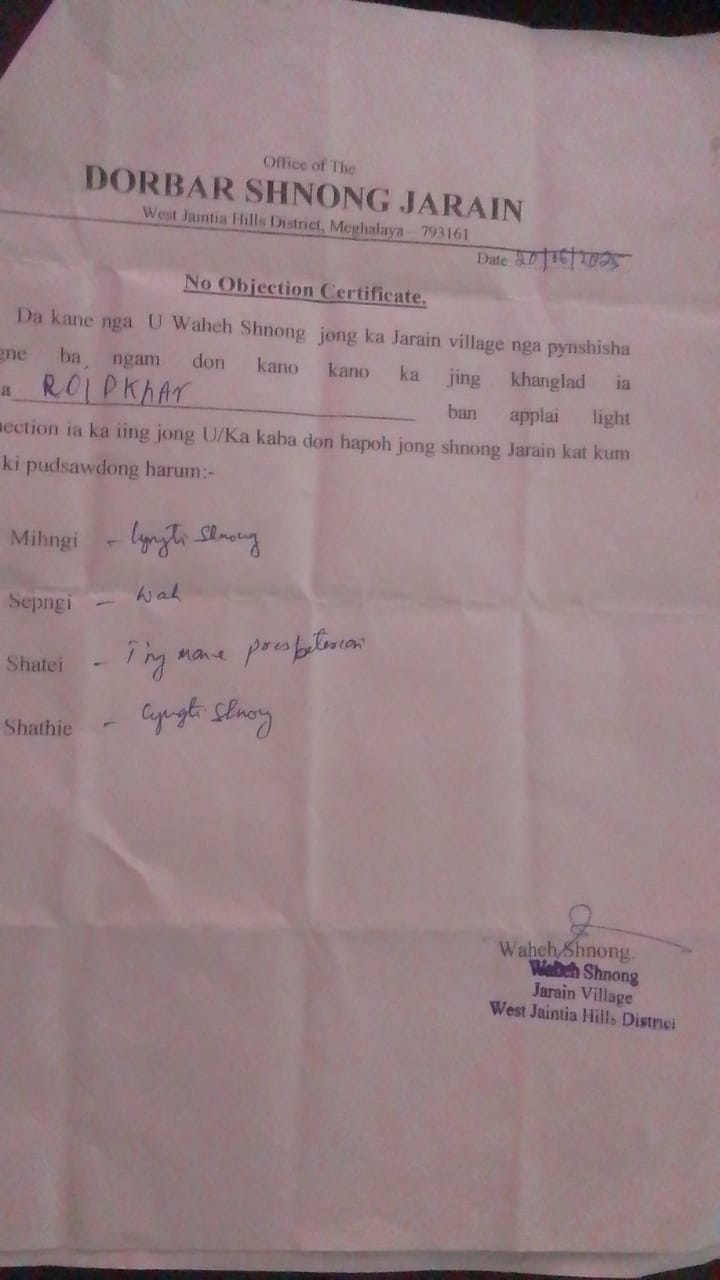 Office of The
DORBAR SHNONG JARAIN
West Jaintia Hills District, Meghalaya – 793161
Date 20/06/2025
No Objection Certificate.
Da kane nga U Waheh Shnong jong ka Jarain village nga pynshisha
gne ba, ngam don kano kano ka jing khanglad ia
a ROI DKHAR ban applai light
nection ia ka iing jong U/Ka kaba don hapoh jong shnong Jarain kat kum
ki pudsawdong harum:-
Mihngi – Lyngti Shnong
Sepngi – Wah
Shatei – Iing mane presbeterian
Shathie – Lyngti Shnong
Waheh Shnong.
Waheh Shnong
Jarain Village
West Jaintia Hills District